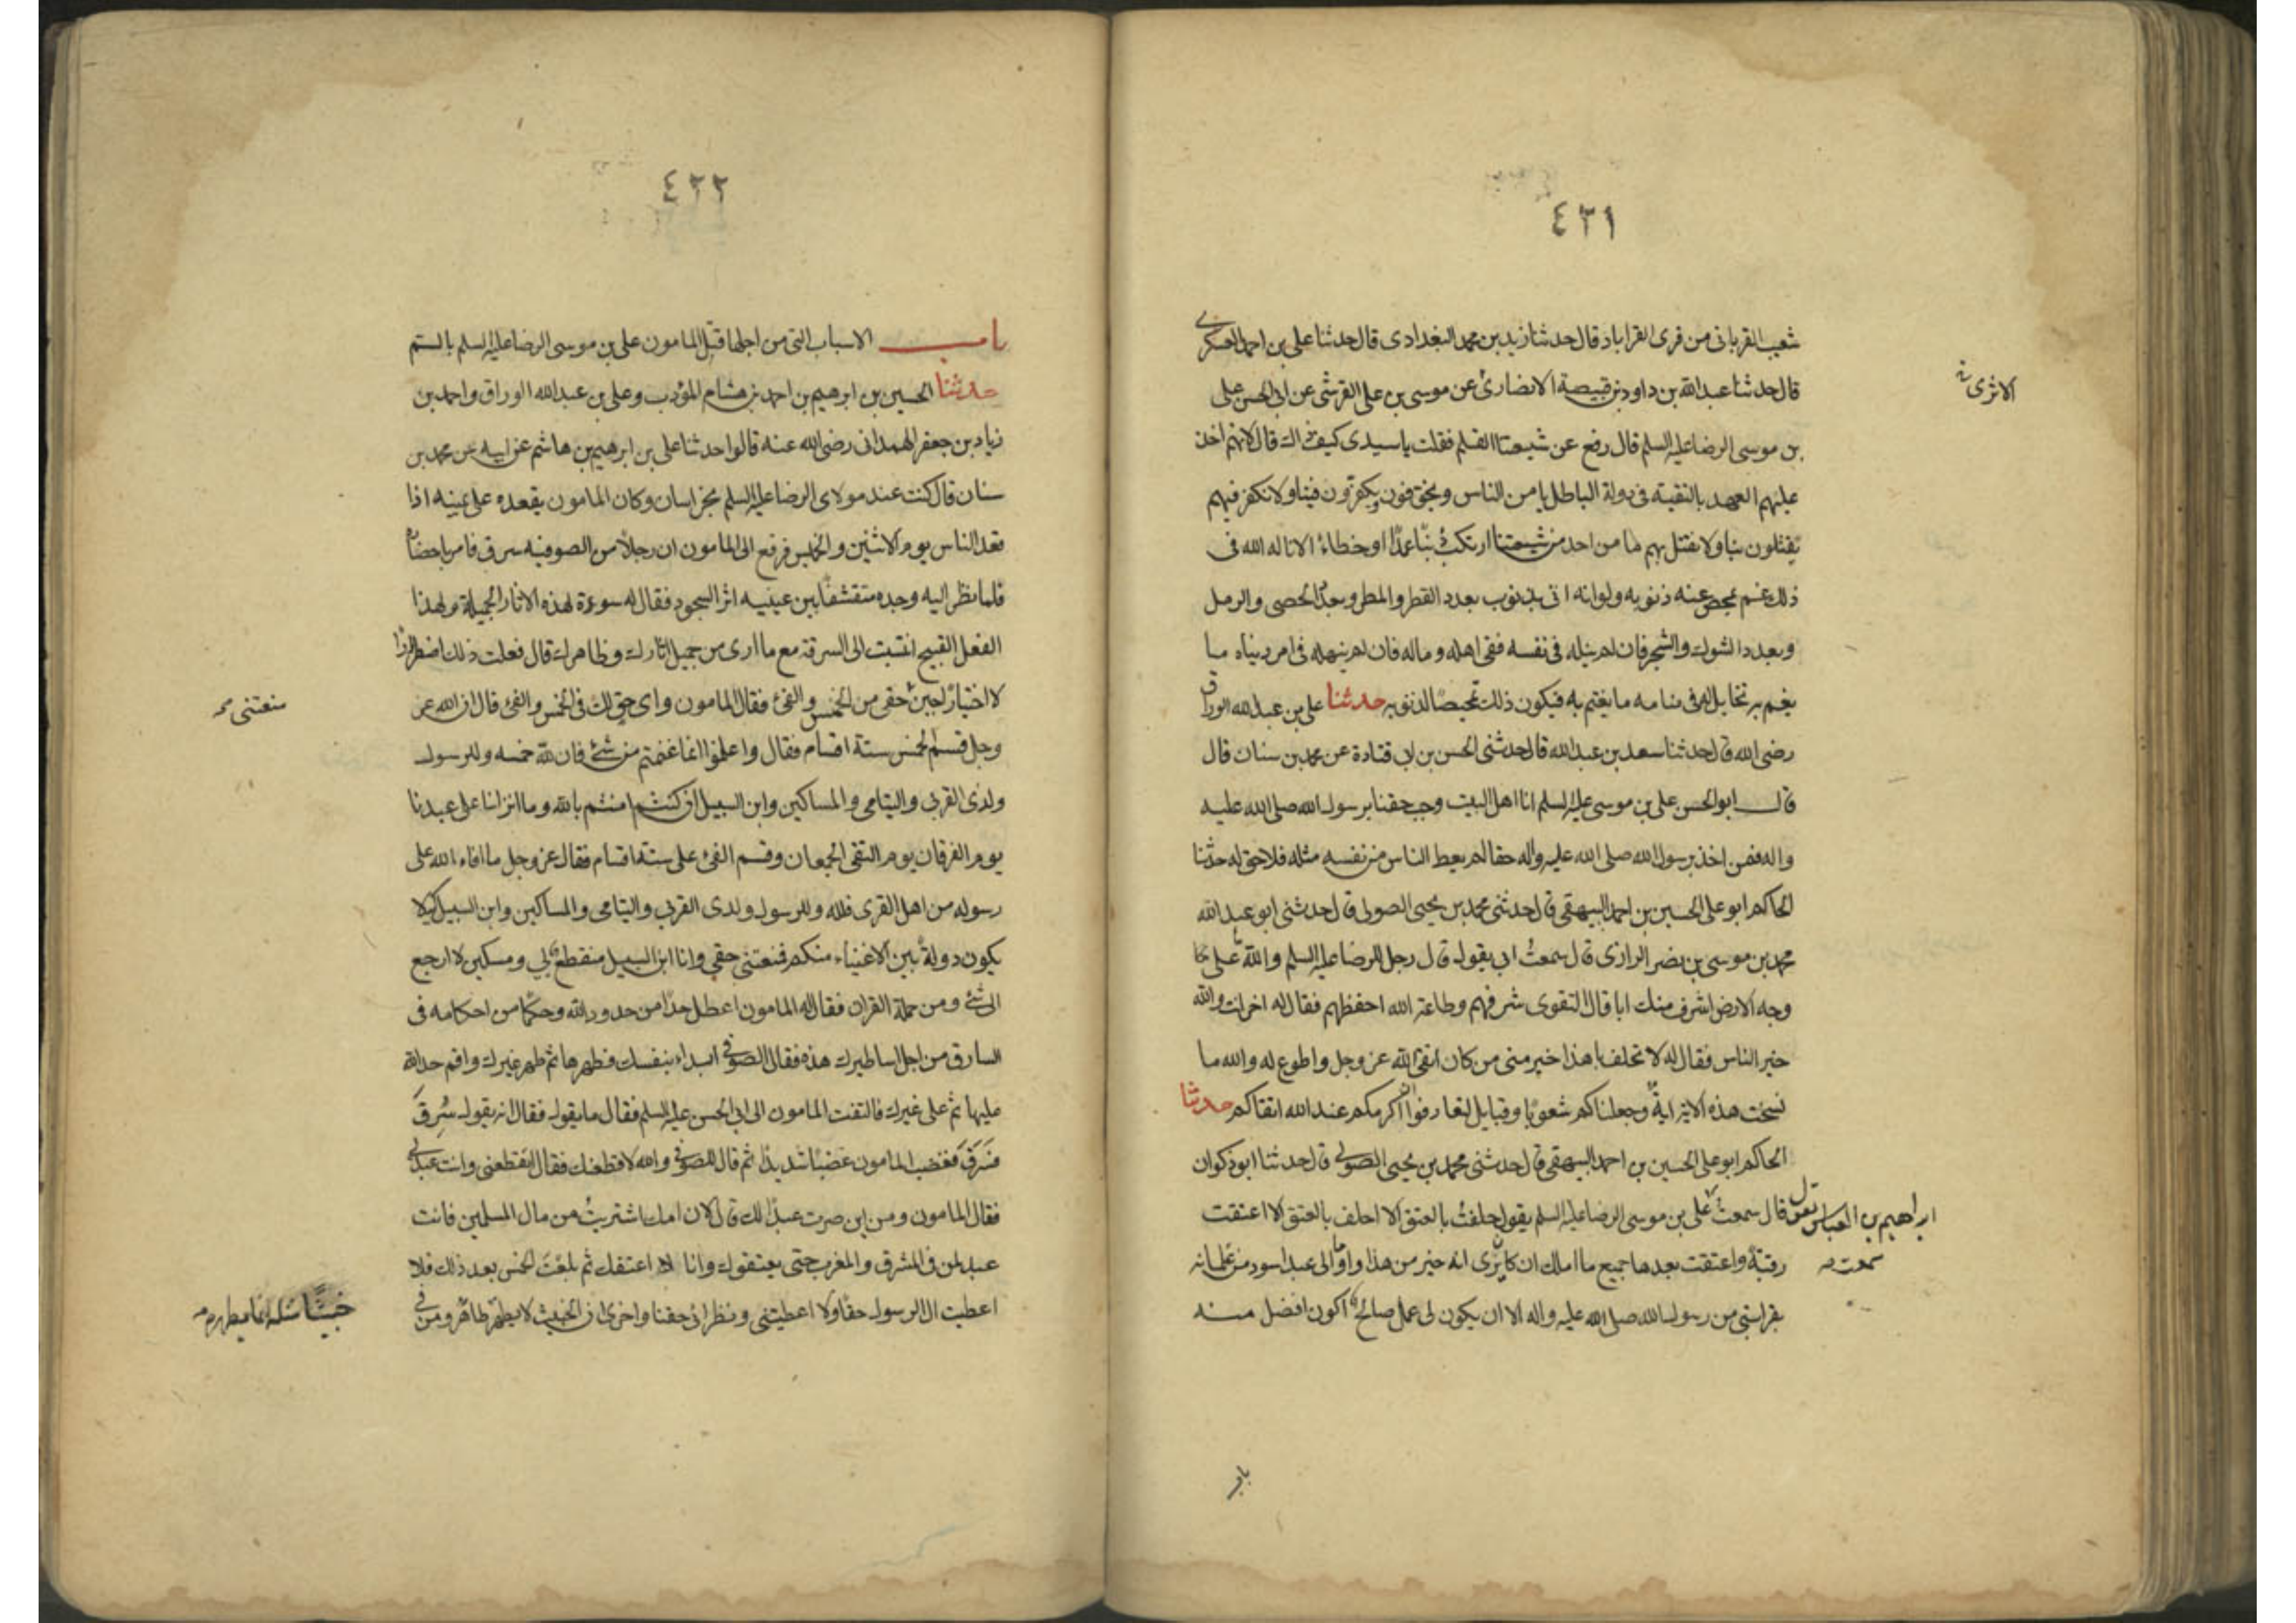 ٤٢١
شعيب القرباني من قرى القراباد قال حدثنا زيد بن محمد البغدادى قال حدثنا على بن احمد العسكرى
قال حدثنا عبد الله بن داود بن قبيصة الانصارى عن موسى بن على القرشى عن ابى الحسن على
بن موسى الرضا عليه السلم قال رفع عن شيعتنا القلم فقلت يا سيدى كيف ذاك قال لانهم اخذ
عليهم العهد بالتقية فى دولة الباطل يامن الناس ويخوفون ويكفرون فينا ولا نكفر فيهم
يقتلون بنا ولا نقتل بهم ما من احد من شيعتنا ارتكب ذنبا عمدا او خطاء الا ناله الله فى
ذلك غم يمحص عنه ذنوبه ولو انه اتى بذنوب بعدد القطر والمطر وبعدد الحصى والرمل
وبعدد الشوك والشجر فان لم ينله فى نفسه ففى اهله وماله فان لم ينله فى امر دنياه ما
يغتم به تخايل له فى منامه ما يغتم به فيكون ذلك تمحيصا لذنوبه حدثنا على بن عبد الله الوراق
رضى الله قال حدثنا سعد بن عبد الله قال حدثنى الحسن بن ابى قتادة عن محمد بن سنان قال
قال ابو الحسن على بن موسى عليه السلم انا اهل البيت وجب حقنا برسول الله صلى الله عليه
واله فمن اخذ برسول الله صلى الله عليه واله حقا لم يعط الناس من نفسه مثله فلا حق له حدثنا
الحاكم ابو على الحسين بن احمد البيهقى قال حدثنى محمد بن يحيى الصولى قال حدثنى ابو عبد الله
محمد بن موسى بن نصر الرازى قال سمعت ابى يقول قال رجل للرضا عليه السلم والله ما على
وجه الارض اشرف منك ابا قال التقوى شرفهم وطاعة الله احفظهم فقال له اخر انت والله
خير الناس فقال له لا تحلف يا هذا خير منى من كان اتقى لله عز وجل واطوع له والله ما
نسخت هذه الاية اية وجعلناكم شعوبا وقبايل لتعارفوا ان اكرمكم عند الله اتقاكم حدثنا
الحاكم ابو على الحسين بن احمد البيهقى قال حدثنى محمد بن يحيى الصولى قال حدثنا ابو ذكوان
قال سمعت على بن موسى الرضا عليه السلم يقول حلفت بالعتق الا احلف بالعتق الا اعتقت
رقبة واعتقت بعدها جميع ما املك ان كان يرى انه خير من هذا واوما الى عبد اسود من غلمانه
بقرابتى من رسول الله صلى الله عليه واله الا ان يكون لى عمل صالح اكون افضل منه
ابراهيم بن العباس يقول
سمعت
باب
٤٢٢
باب الاسباب التى من اجلها قتل المامون على بن موسى الرضا عليه السلم بالسم
حدثنا الحسين بن ابرهيم بن احمد بن هشام المؤدب وعلى بن عبد الله الوراق واحمد بن
زياد بن جعفر الهمدانى رضى الله عنه قالوا حدثنا على بن ابرهيم بن هاشم عن ابيه عن محمد بن
سنان قال كنت عند مولاى الرضا عليه السلم بخراسان وكان المامون يقعده على يمينه اذا
قعد الناس يوم الاثنين والخميس فرفع الى المامون ان رجلا من الصوفية سرق فامر باحضاره
فلما نظر اليه وجده متقشفا بين عينيه اثر السجود فقال له سوءة لهذه الاثار الجميلة ولهذا
الفعل القبيح اتنسب الى السرقة مع ما ارى من جميل اثارك وظاهرك قال فعلت ذلك اضطرارا
لا اختيارا حقى من الخمس والفئ فقال المامون واى حق لك فى الخمس والفئ قال ان الله عز
وجل قسم الخمس ستة اقسام فقال واعلموا انما غنمتم من شئ فان لله خمسه وللرسول
ولذى القربى واليتامى والمساكين وابن السبيل ان كنتم امنتم بالله وما انزلنا على عبدنا
يوم الفرقان يوم التقى الجمعان وقسم الفئ على ستة اقسام فقال عز وجل ما افاء الله على
رسوله من اهل القرى فلله وللرسول ولذى القربى واليتامى والمساكين وابن السبيل كيلا
يكون دولة بين الاغنياء منكم فمنعتنى حقى وانا ابن السبيل منقطع بى ومسكين لا ارجع
الى شئ ومن حملة القران فقال له المامون اعطل حدا من حدود الله وحكما من احكامه فى
السارق من اجل اساطيرك هذه فقال الصوفى ابداء بنفسك فطهرها ثم طهر غيرك واقم حد الله
عليها ثم على غيرك فالتفت المامون الى ابى الحسن عليه السلم فقال ما يقول فقال انه يقول سرق
فسرق فغضب المامون غضبا شديدا ثم قال للصوفى والله لاقطعنك فقال اتقطعنى وانت عبد لى
فقال المامون ومن اين صرت عبدا لك قال لان امك اشتريت من مال المسلمين فانت
عبد لمن فى المشرق والمغرب حتى يعتقوك وانا لا اعتقك ثم بلغت الخمس بعد ذلك فلا
اعطيت ال الرسول حقا ولا اعطيتنى ونظرائى حقنا واخرى ان الخبيث لا يطهر طاهر ومن فى